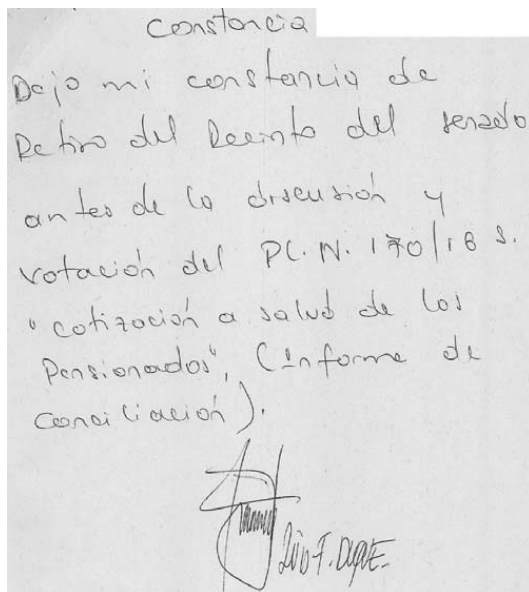 Constancia
Dejo mi constancia de
Retiro del Recinto del senado
antes de la discusión y
votación del P.L. N. 170/16 S.
"cotización a salud de los
Pensionados", (Informe de
Conciliación).
F. DUQUE-